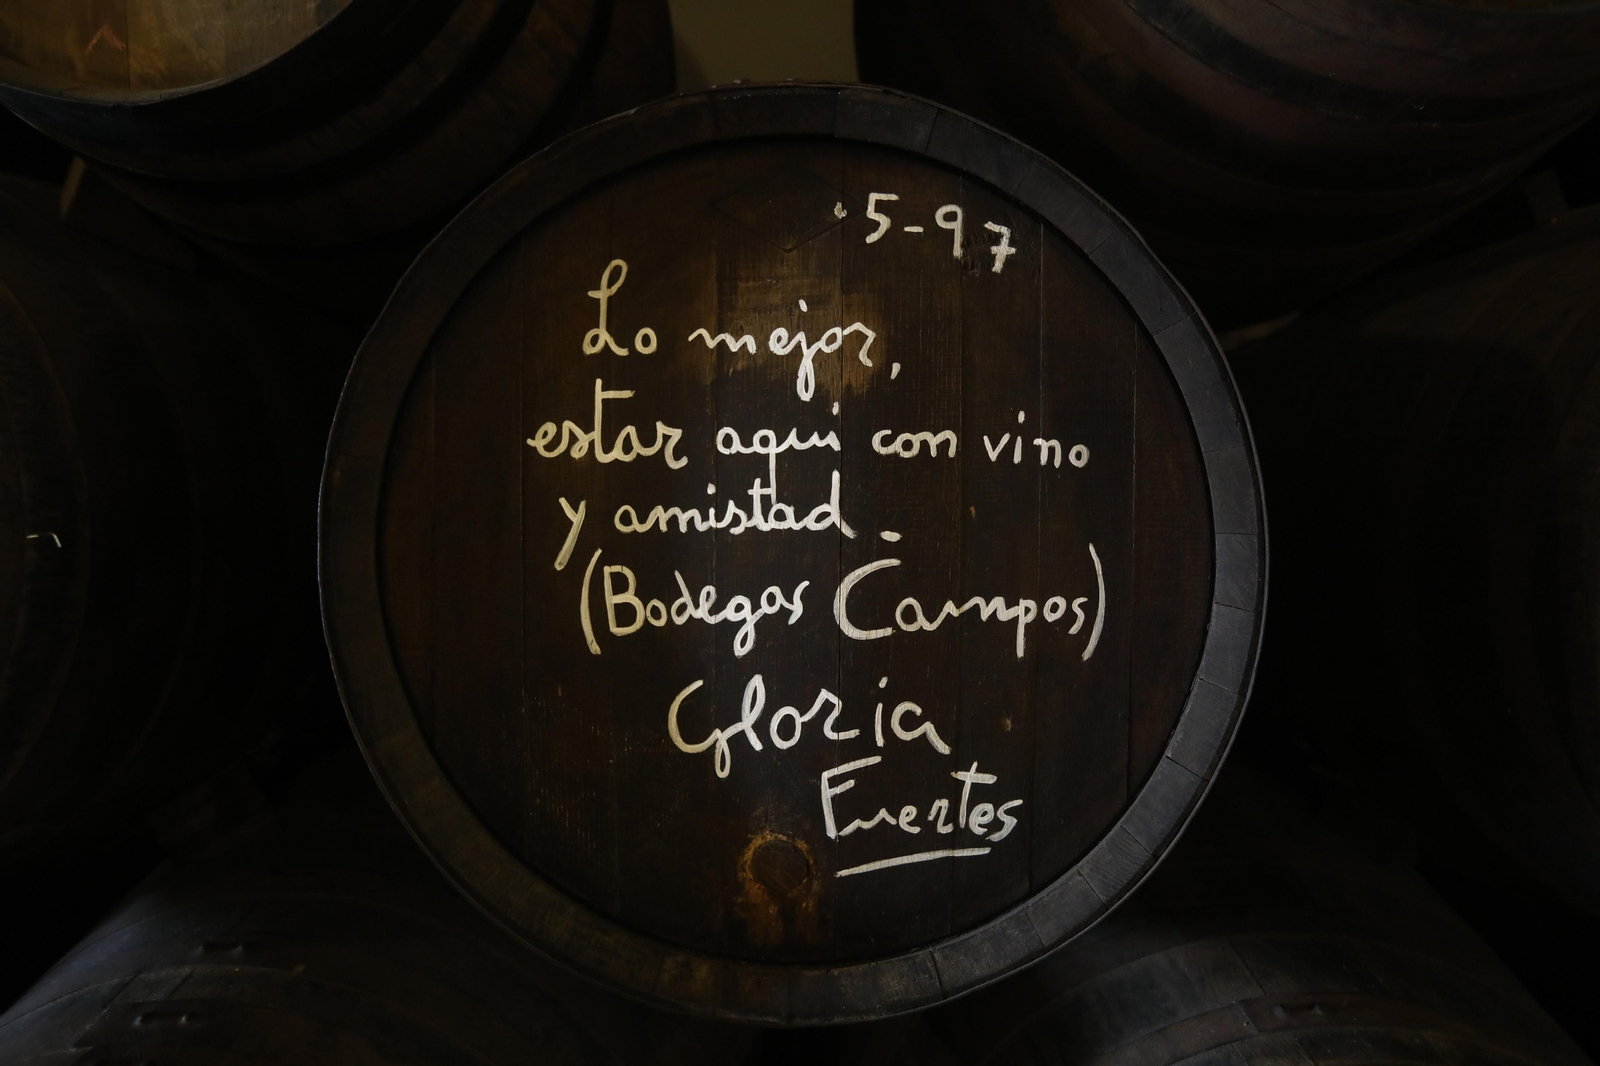 5-97
Lo mejor,
estar aqui con vino
y amistad.
(Bodegas Campos)
Gloria
Fuertes